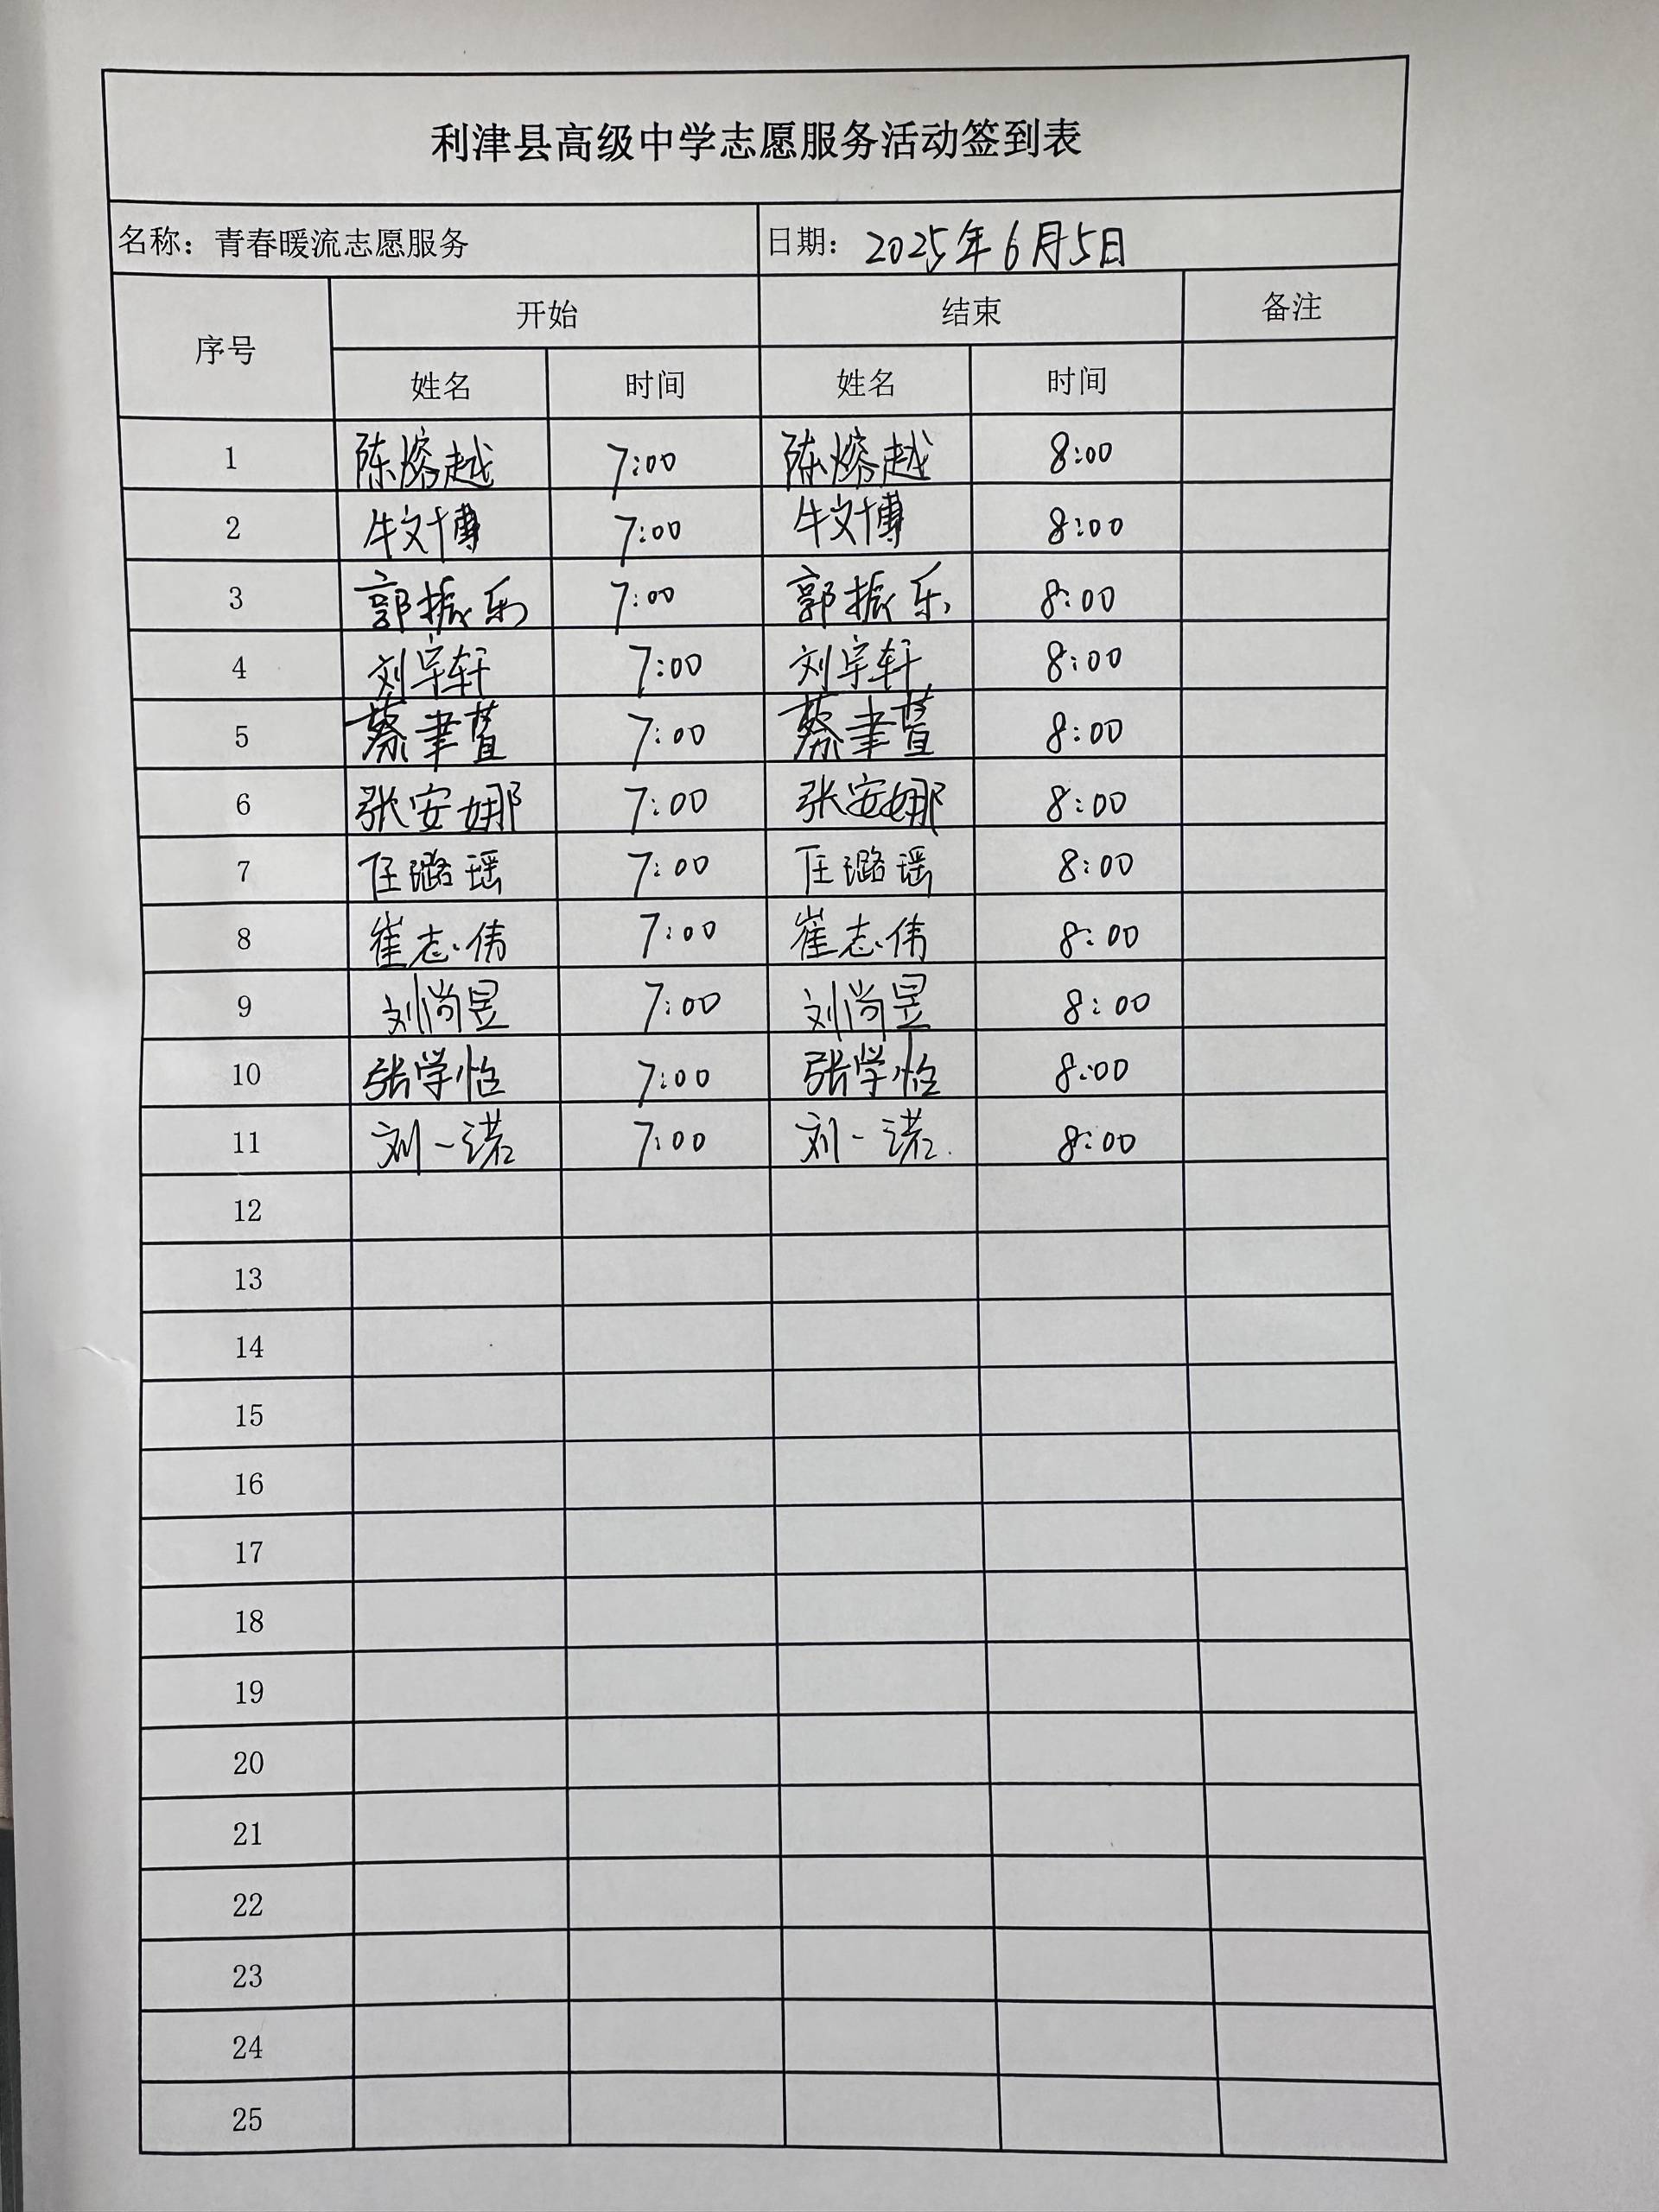 利津县高级中学志愿服务活动签到表
名称：青春暖流志愿服务 日期：2025年6月5日
序号 开始 结束 备注
姓名 时间 姓名 时间
1 陈熔越 7:00 陈熔越 8:00
2 牛文博 7:00 牛文博 8:00
3 郭振乐 7:00 郭振乐 8:00
4 刘宇轩 7:00 刘宇轩 8:00
5 蔡聿萱 7:00 蔡聿萱 8:00
6 张安娜 7:00 张安娜 8:00
7 任璐瑶 7:00 任璐瑶 8:00
8 崔志伟 7:00 崔志伟 8:00
9 刘尚昱 7:00 刘尚昱 8:00
10 张学怡 7:00 张学怡 8:00
11 刘一诺 7:00 刘一诺 8:00
12
13
14
15
16
17
18
19
20
21
22
23
24
25